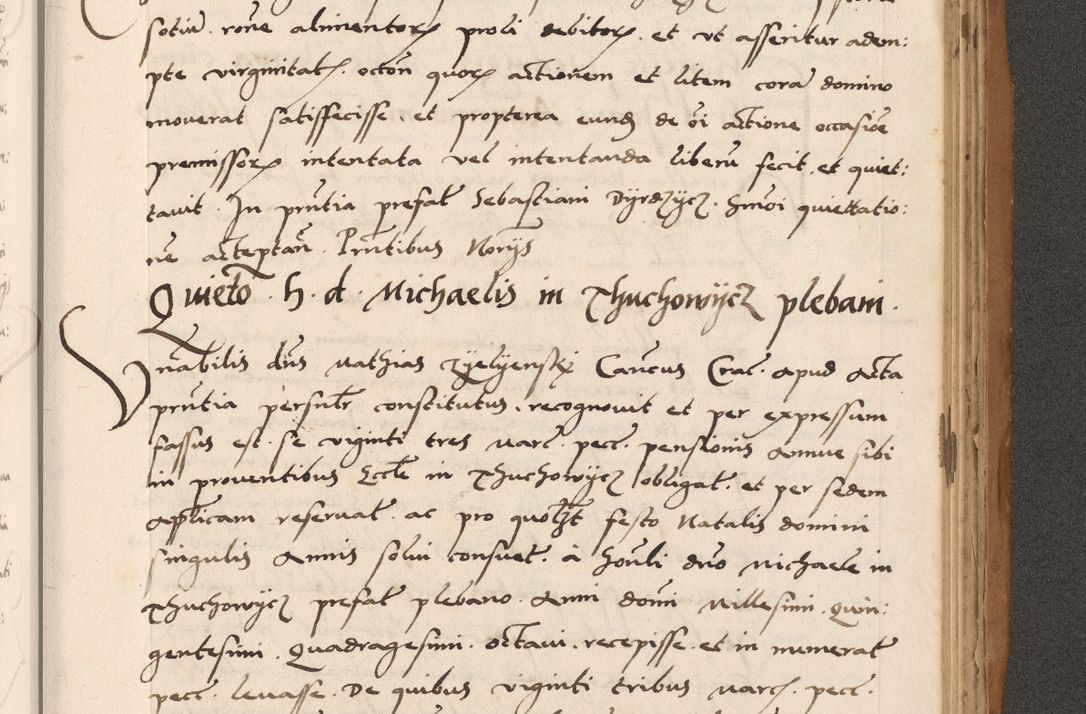 sotiu. rone alimentor proli debitor. et vt asseritur adem:
pte virginitat. octon quor actionem et litem cora domino
moverat satisfecisse. et propterea eund de oi actione occasioe
premissor intentata vel intentanda liberu fecit. et quiet:
tauit. In pntia prefat Sebastiani Dyrdzycz. hmoi quiettatio:
ne acceptan. Pntibus Norys
Quieto. h. d. Michaelis in Thuchowycz plebani.
Vnabilis dns Mathias zyelyensky Cancus Crac. apud acta
pntia personlr constitutus. recognovit et per expressum
fassus est. se viginti tres marc. pecc. pensionis annue sibi
in proventibus Eccle in Thuchowycz obligat. et per sedem
aplicam reservat. ac pro quolzt festo Natalis domini
singulis Annis solui consuet. à honli dno Michaele in
Thuchowycz prefat plebano. Anni domi Millesimi. Quin:
gentesimi. Quadragesimi. octaui. recepisse. et in numerat
pecc. levasse. De quibus viginti tribus marc. pecc.